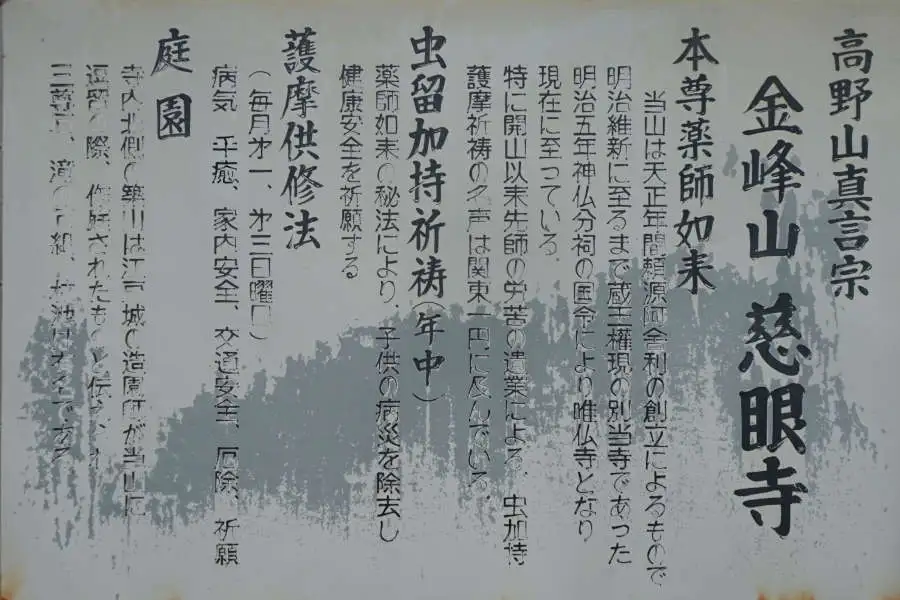 高野山真言宗
金峰山 慈眼寺
本尊薬師如来
当山は天正年間頼源阿舎利の創立によるもので
明治維新に至るまで蔵王権現の別当寺であった
明治五年神仏分祠の国令により唯仏寺となり
現在に至っている。
特に開山以来先師の労苦の遺業による、虫加持
護摩祈祷の名声は関東一円に及んでいる。
虫留加持祈祷(年中)
薬師如来の秘法により、子供の病災を除去し
健康安全を祈願する
護摩供修法
(毎月第一、第三日曜日)
病気平癒、家内安全、交通安全、厄除、祈願
庭園
寺内北側の築山は江戸城の造園師が当山に
逗留の際、されたものと伝え
三尊石、滝の石組、池は有名である